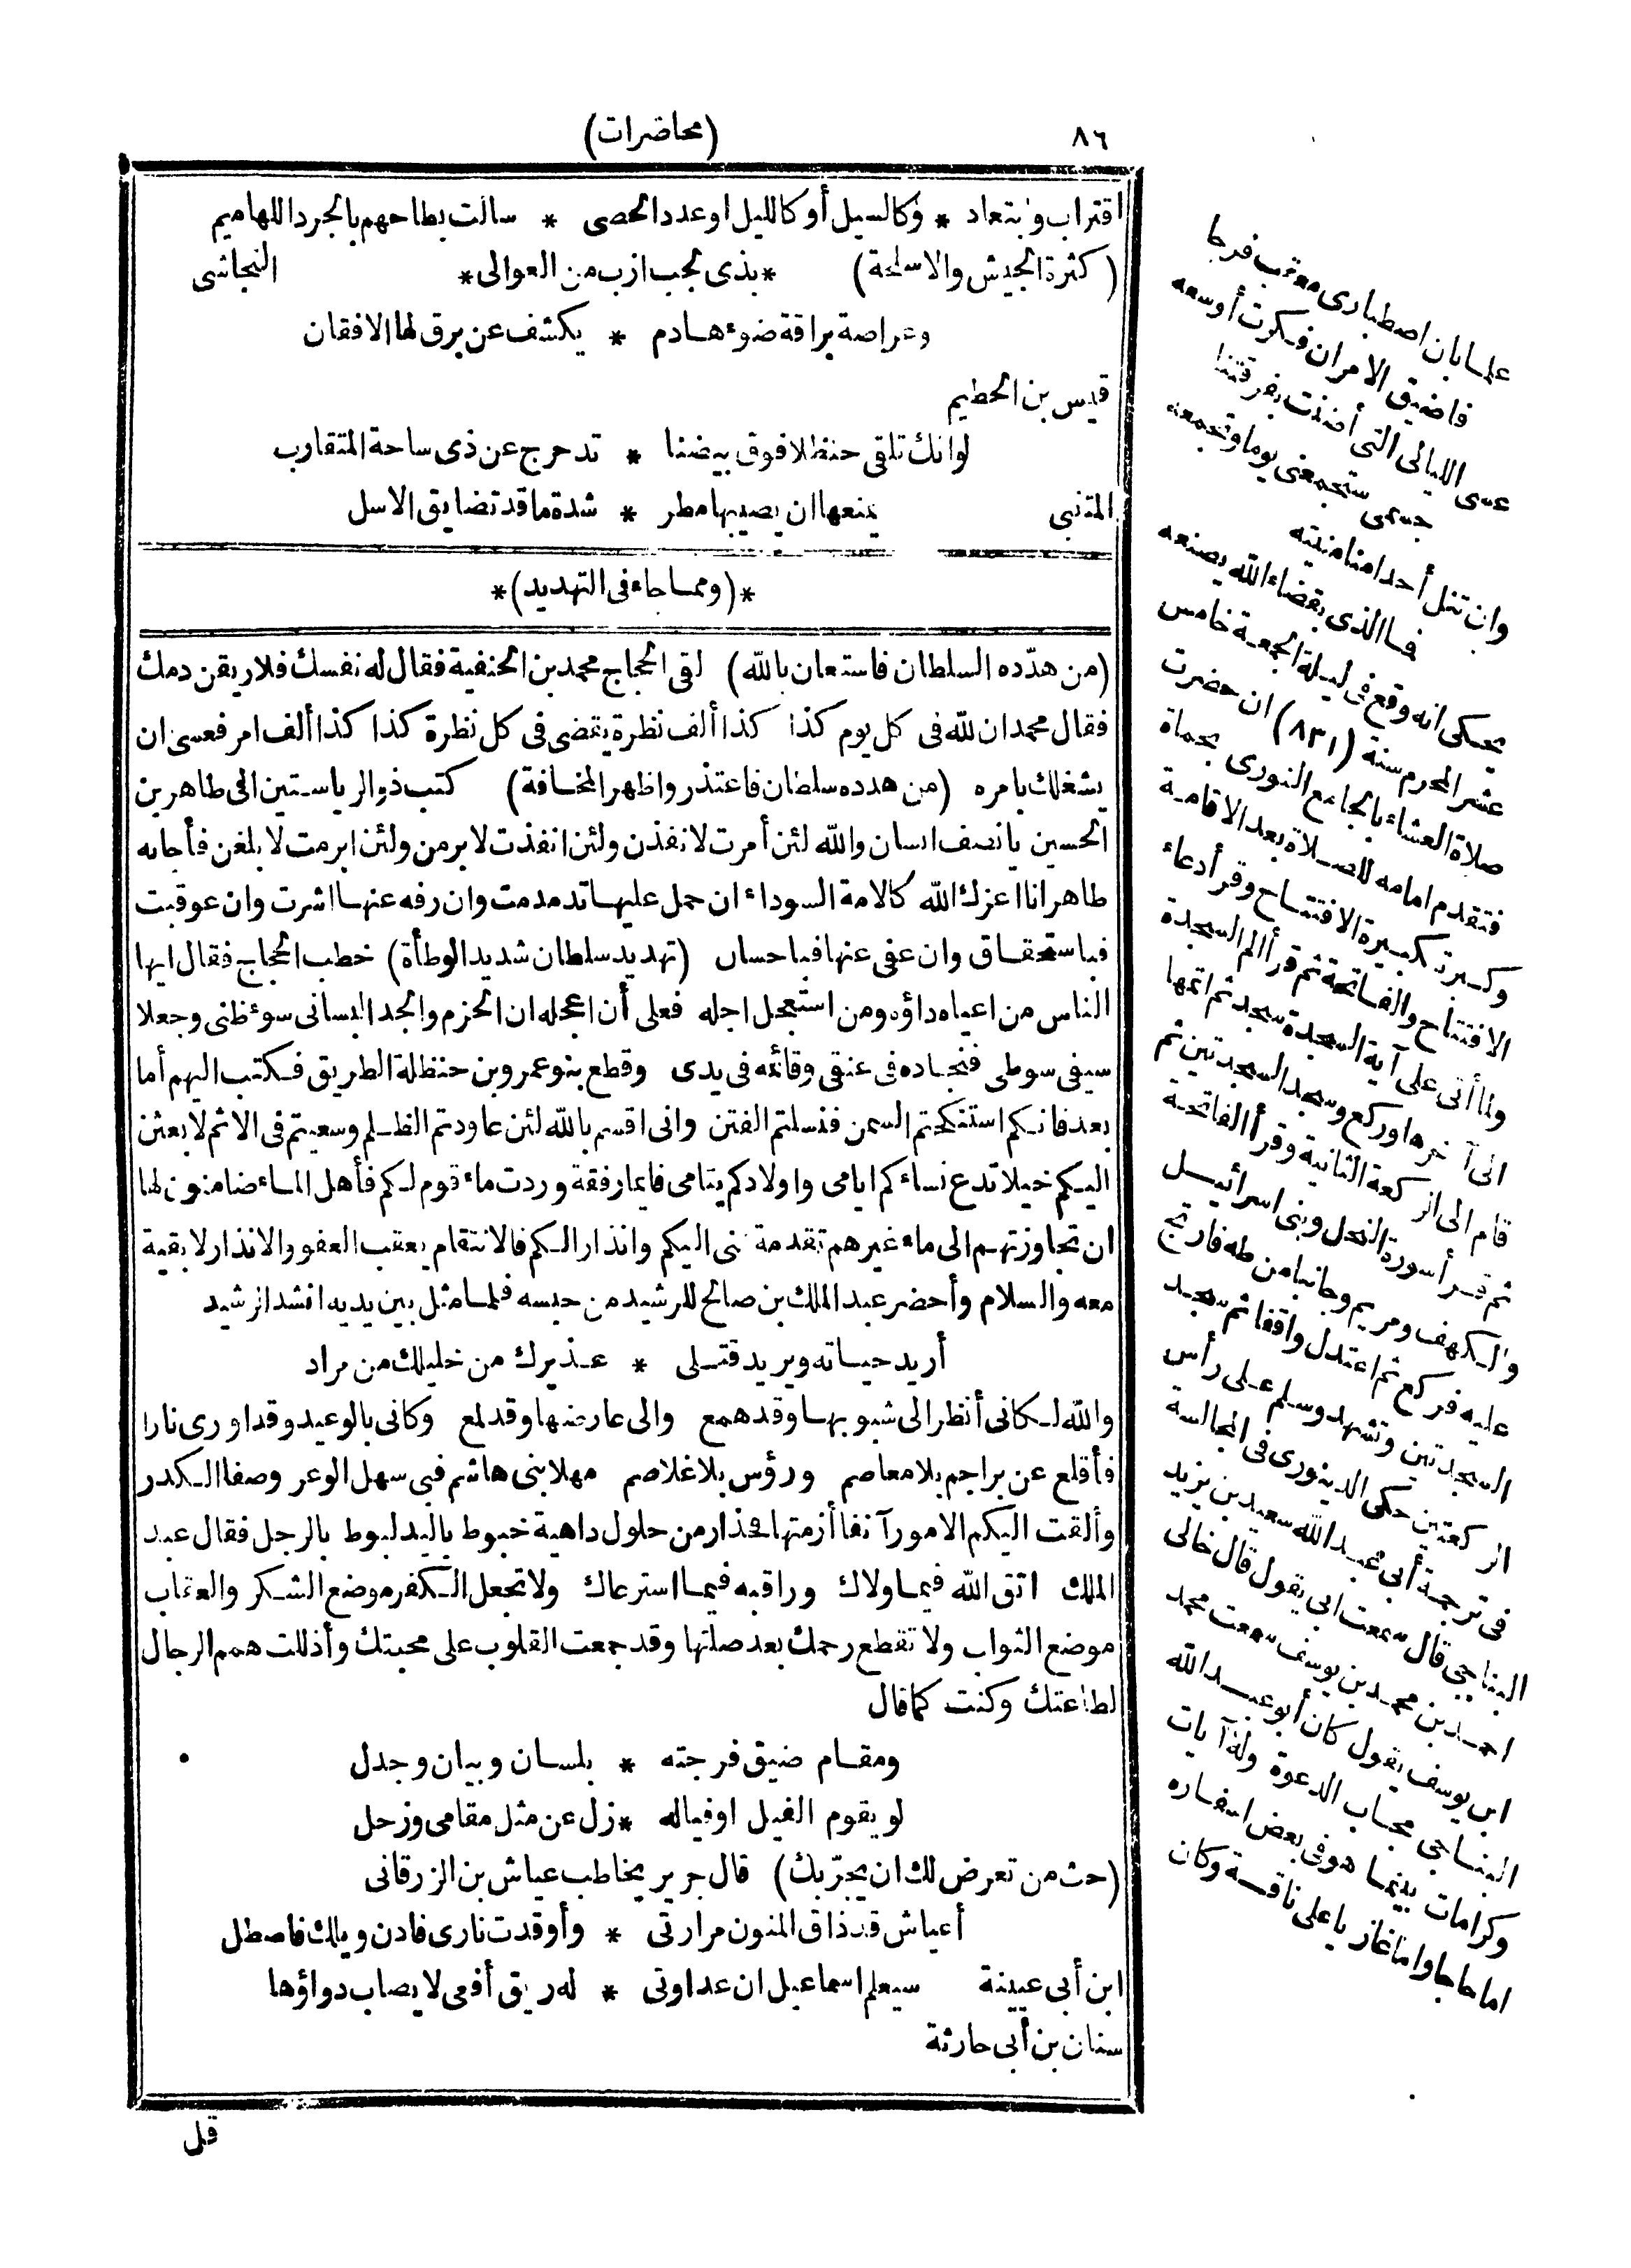 ٨٦
(محاضرات)
اقتراب وابتعاد * وكالسيل أو كالليل او عدد الحصى * سالت بطاحهم بالجرد اللهاميم
(كثرة الجيش والاسلحة) *بذى لجب ازب من العوالى* النجاشى
وعراصة براقة ضوء هادم * يكشف عن برق لها الافقان
قيس بن الحطيم
لو انك تلقى حنظلا فوق بيضنا * تدحرج عن ذى ساحة المتقارب
المتنبى يمنعها ان يصيبها مطر * شدة ما قد تضايق الاسل
*(ومما جاء فى التهديد)*
(من هدّده السلطان فاستعان بالله) لقى الحجاج محمد بن الحنفية فقال له نفسك فلاريقن دمك
فقال محمد ان لله فى كل يوم كذا كذا ألف نظرة يقضى فى كل نظرة كذا كذا ألف امر فعسى ان
يشغلك بامره (من هدده سلطان فاعتذر واظهر المخافة) كتب ذو الرياستين الى طاهر بن
الحسين يا نصف انسان والله لئن أمرت لانفذن ولئن انفذت لابرمن ولئن ابرمت لابلغن فأجابه
طاهر انا اعزك الله كالامة السوداء ان حمل عليها تدمدمت وان رفه عنها اشرت وان عوقبت
فباستحقاق وان عفى عنها فباحسان (تهديد سلطان شديد الوطأة) خطب الحجاج فقال ايها
الناس من اعياه داؤه ومن استعجل اجله فعلى أن اعجله ان الحزم والجد البسانى سوء ظنى وجعلا
سيفى سوطى فنجاده فى عنقى وقائمه فى يدى وقطع بنو عمرو بن حنظلة الطريق فكتب اليهم أما
بعد فانكم استنكحتم السمن فنسلتم الفتن وانى اقسم بالله لئن عاودتم الظلم وسعيتم فى الاثم لابعثن
اليكم خيلا تدع نساءكم ايامى واولادكم يتامى فايما رفقة وردت ماء قوم لكم فأهل الماء ضامنون لها
ان تجاوزتهم الى ماء غيرهم تقدمة منى اليكم وانذارا لكم فالانتقام يعقب العفو والانذار لا بقية
معه والسلام وأحضر عبد الملك بن صالح للرشيد من حبسه فلما مثل بين يديه انشد الرشيد
أريد حياته ويريد قتلى * عذيرك من خليلك من مراد
والله لكانى أنظر الى شبوبها وقد همع والى عارضها وقد لمع وكانى بالوعيد وقد اورى نارا
فأقلع عن براجم بلا معاصم ورؤس بلا غلاصم مهلا بنى هاشم فبى سهل الوعر وصفا الكدر
وألقت اليكم الامور آنفا أزمتها فحذار من حلول داهية خبوط باليد لبوط بالرجل فقال عبد
الملك اتق الله فيما ولاك وراقبه فيما استرعاك ولا تجعل الكفر موضع الشكر والعقاب
موضع الثواب ولا تقطع رحمك بعد صلتها وقد جمعت القلوب على محبتك وأذللت همم الرجال
لطاعتك وكنت كما قال
ومقام ضيق فرجته * بلسان وبيان وجدل
لو يقوم الفيل او فياله *زل عن مثل مقامى وزحل
(حث من تعرض لك ان يجرّبك) قال جرير يخاطب عياش بن الزرقانى
أعياش قد ذاق المنون مرارتى * وأوقدت نارى فادن ويلك فاصطل
ابن أبى عيينة سيعلم اسماعيل ان عداوتى * له ريق أفعى لا يصاب دواؤها
سنان بن أبى حارثة
قل
علما بان اصطبارى معقب فرجا
فاضيق الامر ان فكرت أوسعه
عسى الليالى التى أضنت بفرقتنا
جسمى ستجمعنى يوما وتجمعه
وان تنل أحدا منا منيته
فما الذى بقضاء الله يصنعه
يحكى انه وقع فى ليلة الجمعة خامس
عشر المحرم سنة (٨٣١) ان حضرت
صلاة العشاء بالجامع النورى بحماة
فتقدم امامه للصلاة بعد الاقامة
وكبر تكبيرة الافتتاح وقرأ دعاء
الافتتاح والفاتحة ثم قرأ الم السجدة
ولما أتى على آية السجدة سجد ثم اتمها
الى آخرها وركع وسجد السجدتين ثم
قام الى الركعة الثانية وقرأ الفاتحة
ثم قرأ سورة النحل وبنى اسرائيل
والكهف ومريم وجانبا من طه فارتج
عليه فركع ثم اعتدل واقفا ثم سجد
السجدتين وتشهد وسلم على رأس
الركعتين حكى الدينورى فى المجالسة
فى ترجمة أبى عبد الله سعيد بن يزيد
النباجى قال سمعت ابى يقول قال خالى
احمد بن محمد بن يوسف سمعت محمد
ابن يوسف يقول كان أبو عبد الله
النباجى مجاب الدعوة وله آيات
وكرامات بينما هو فى بعض اسفاره
اما حاجا واما غازيا على ناقة وكان